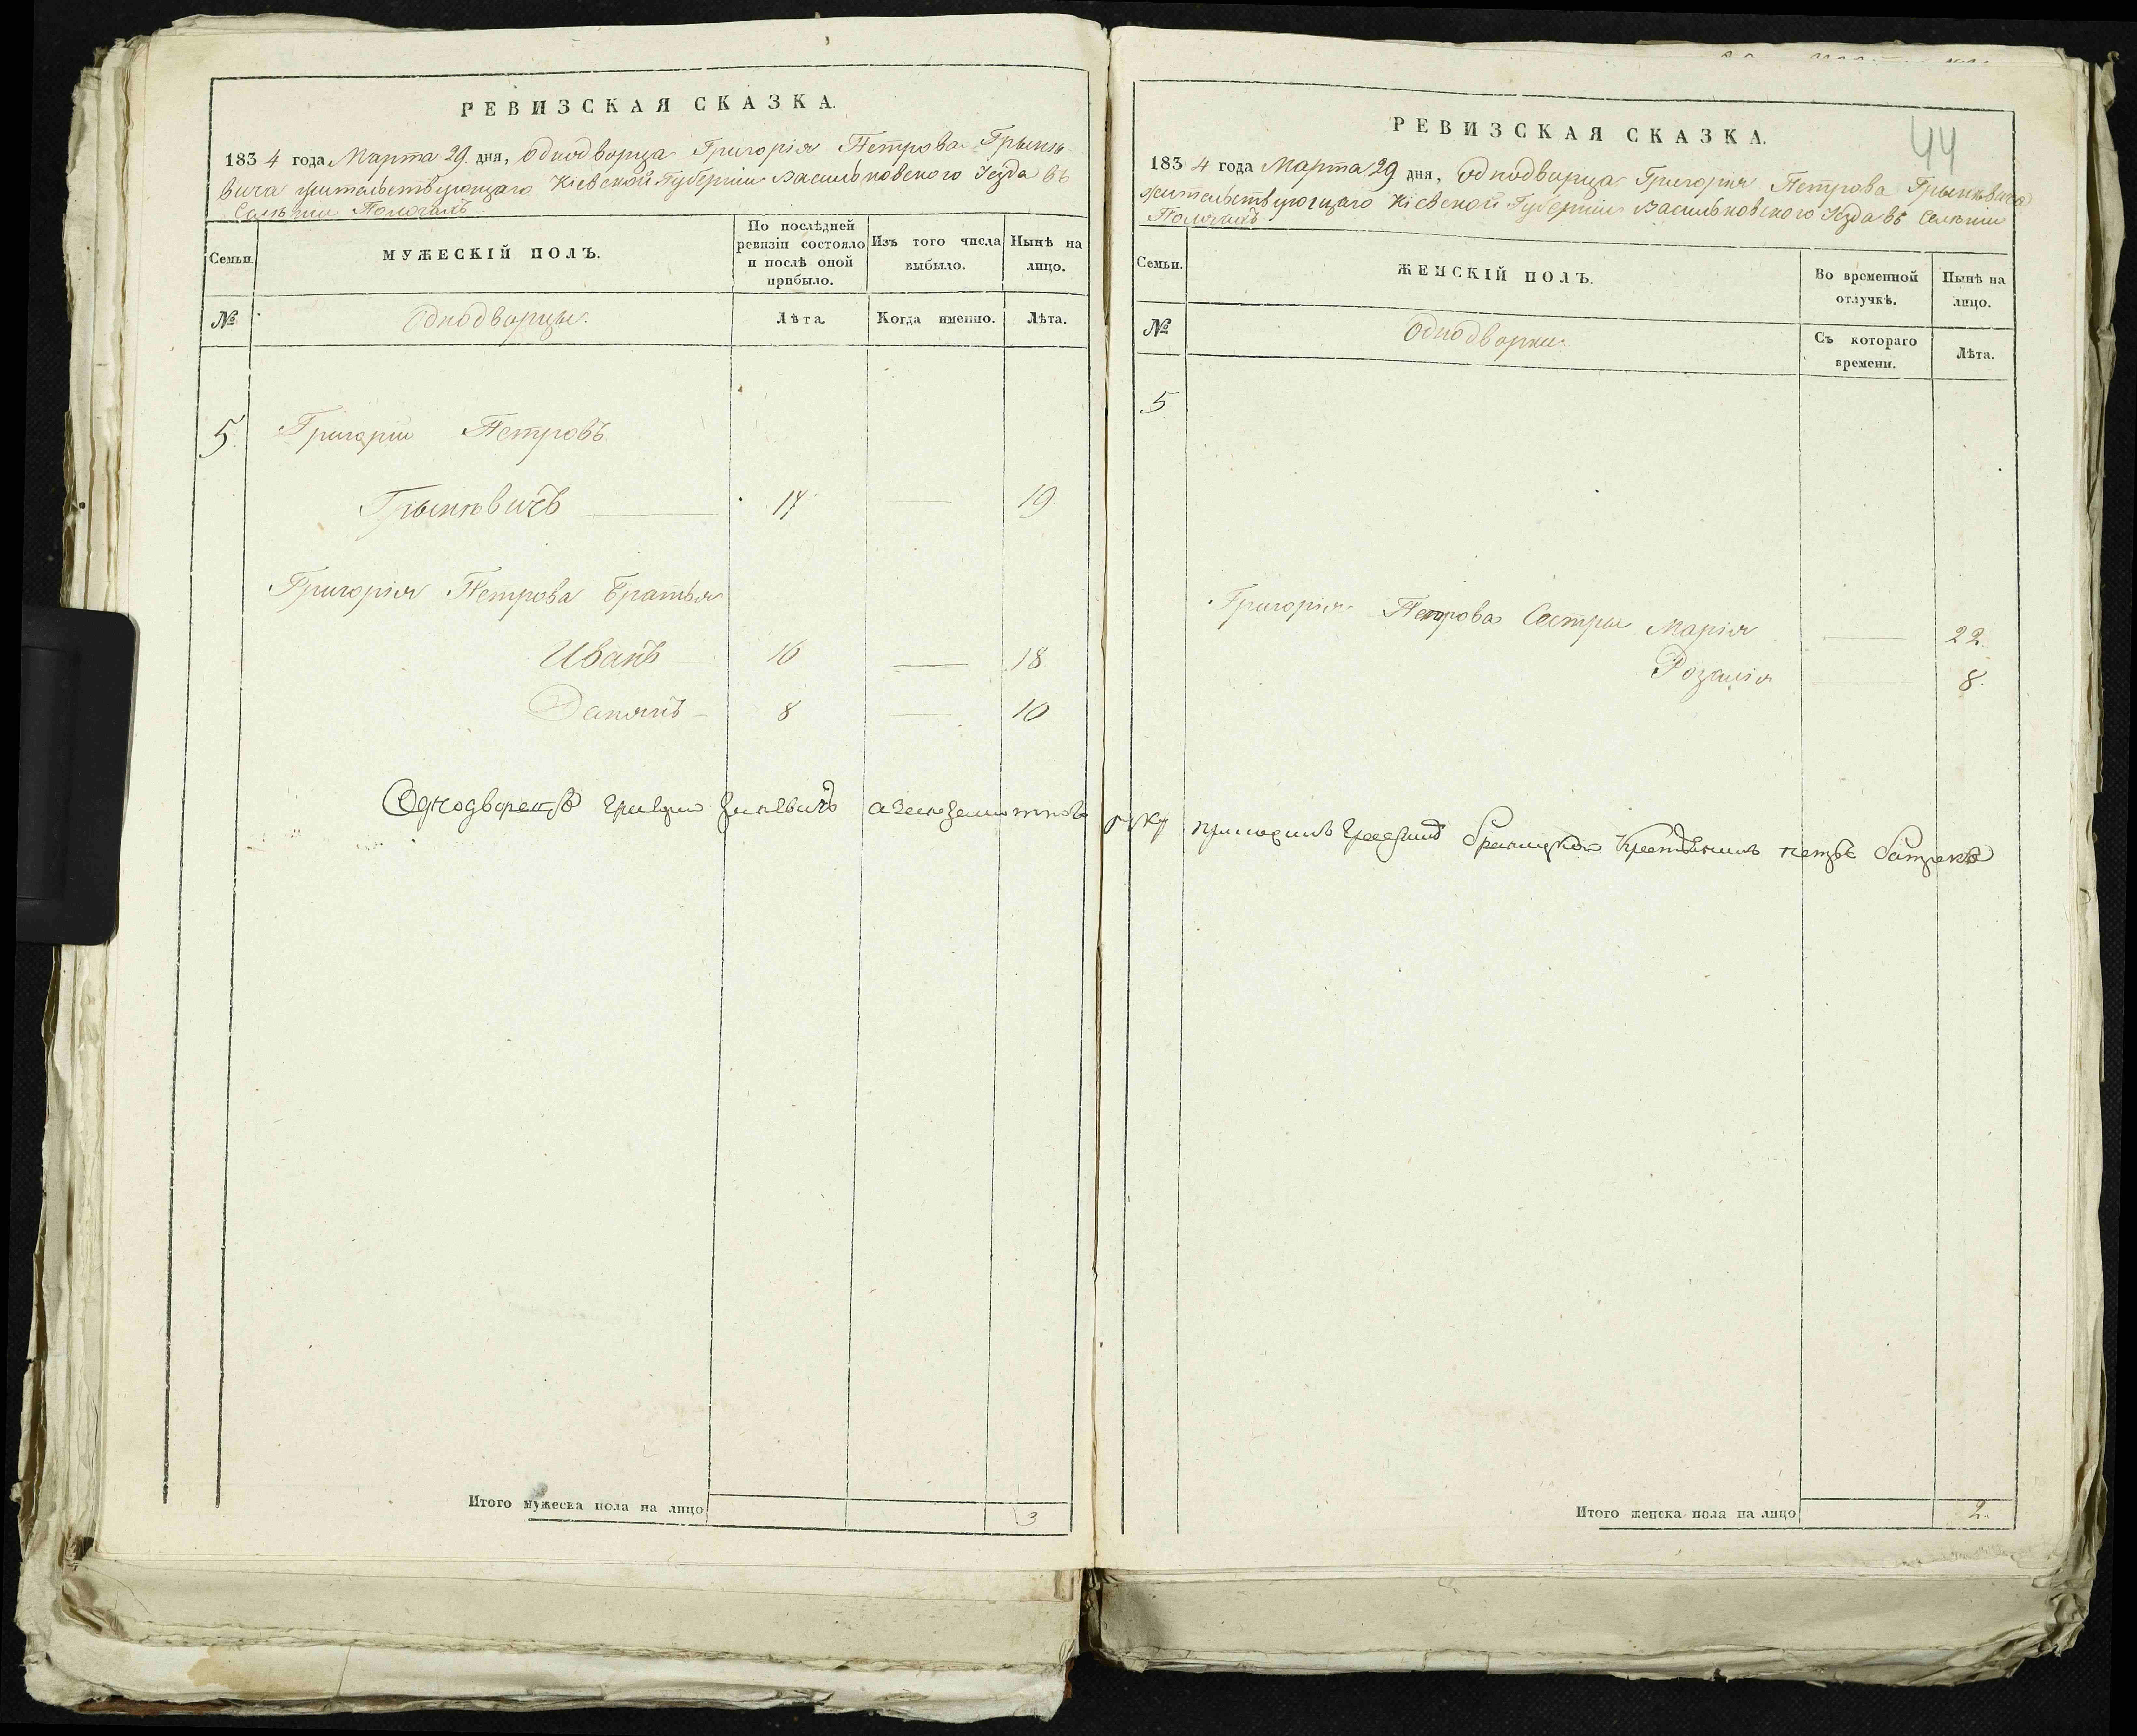 РЕВИЗСКАЯ СКАЗКА.
1834 года Марта 29. дня, однодворца Григорія Петрова Грынке-
вича жительствующаго Кіевской Губерніи Васильковского Уезда въ
Селеніи
Семьи.
МУЖЕСКІЙ ПОЛЪ.
По послѣдней ревизіи состояло и послѣ оной прибыло.
Изъ того числа выбыло.
Нынѣ на лицо.
№
Однодворцы.
Лѣта
Когда именно.
Лѣта.
5. Григорій Петровъ
Грынкевичъ 17 19
Григорія Петрова братья
Иванъ 16 18
8 10
Однодворецъ
Итого мужеска пола на лицо 3
44
РЕВИЗСКАЯ СКАЗКА.
1834 года Марта 29 дня, Однодворца Григорія Петрова Грынкевича
жительствующаго Кіевской Губерніи Васильковского Уезда въ Селеніи
Семьи.
ЖЕНСКІЙ ПОЛЪ.
Во временной отлучкѣ.
Нынѣ на лицо.
№
Однодворки
Съ котораго времени.
Лѣта.
5
Григорія Петрова Сестры Марія 22.
Розалія 8.
руку
Итого женска пола на лицо 2.